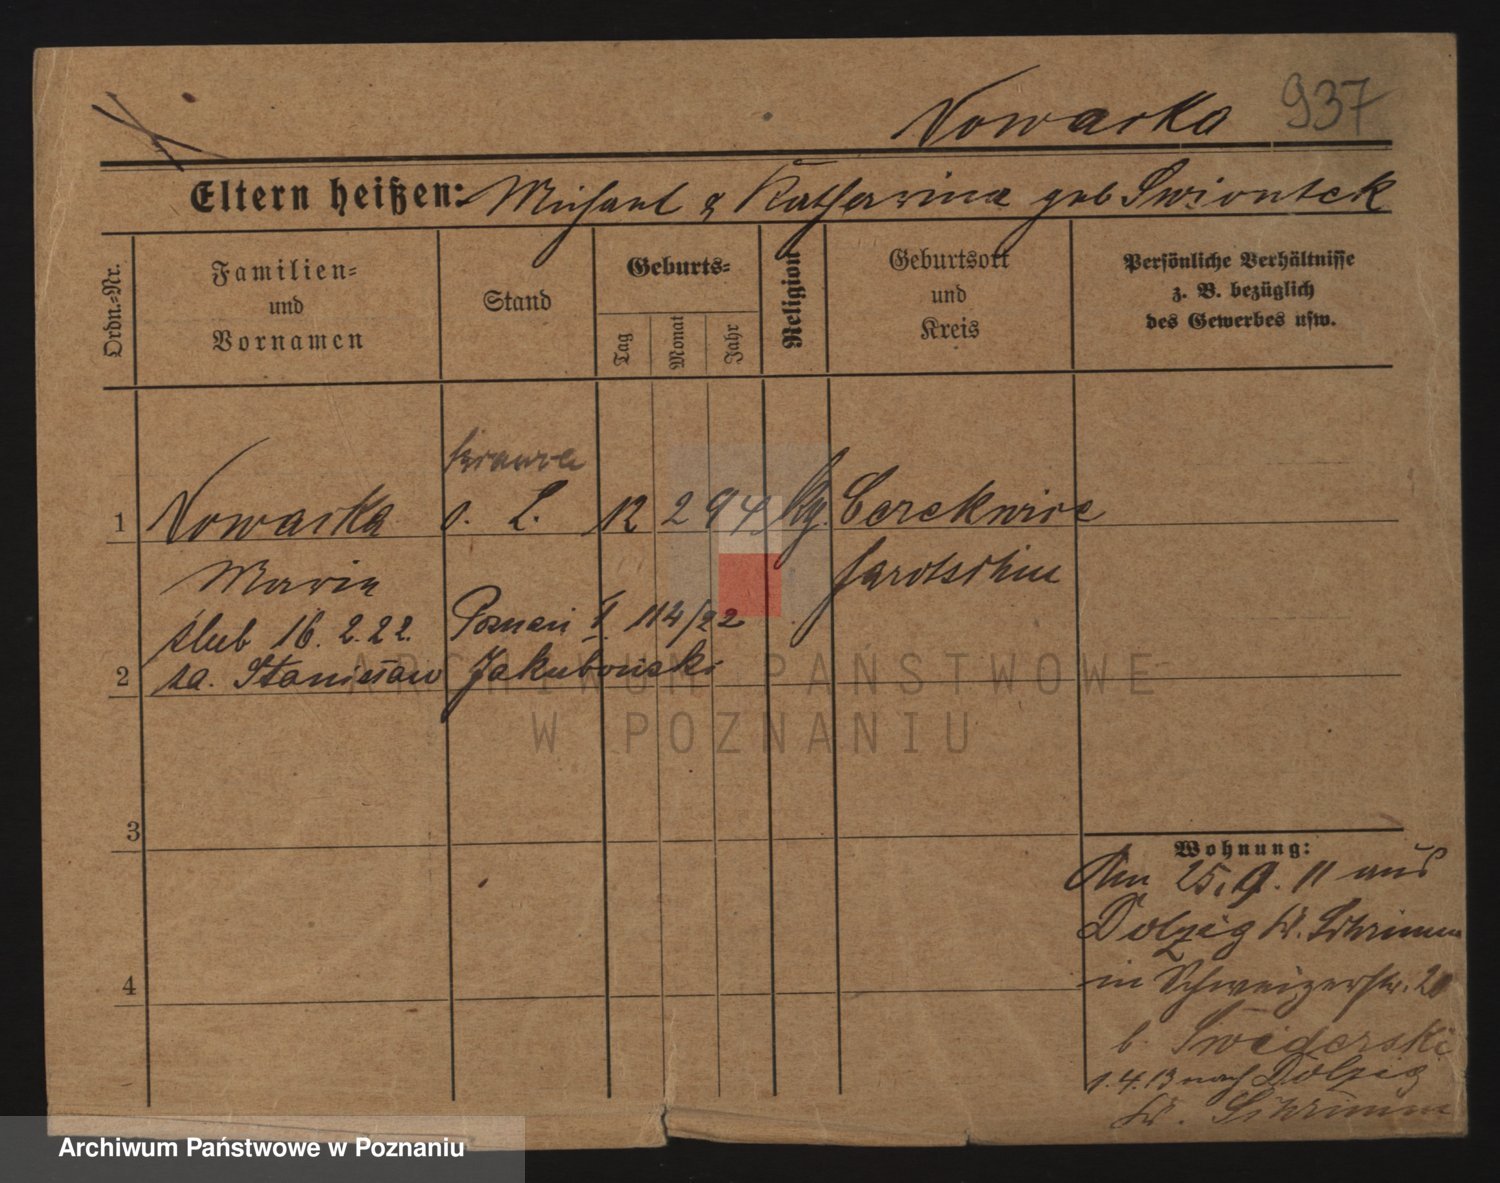 Nowacka 937
Eltern heißen: Michael & Katharina geb Swiontek
Ordn.=Nr.
Familien=
und
Vornamen
Stand
Geburts=
Tag
Monat
Jahr
Religion
Geburtsort
und
Kreis
Persönliche Verhältnisse
z. B. bezüglich
des Gewerbes usw.
1 Nowacka o. L. 12 2 94 Cerekwice
Maria Jarotschin
ślub 16.2.22. Poznań I. 114/22
2 za. Stanisław Jakubowski
ARCHIWUM PAŃSTWOWE
W POZNANIU
3
4
Wohnung:
Am 25.9.11 aus
Dolzig Kr. Schrimm
in Schweizerstr. 20
b. Swiderski
1.4.13 nach Dolzig
Kr. Schrimm
Archiwum Państwowe w Poznaniu